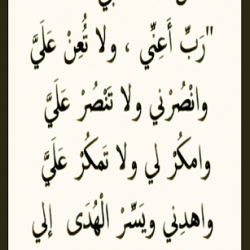 "رَبِّ أَعِنِّي ، ولا تُعِنْ عَلَيَّ
وانْصُرْني ولا تَنْصُرْ عَلَيَّ
وامكُرْ لي ولا تَمكُرْ عَلَيَّ
واهدِني ويَسِّرْ الْهُدَى إلي